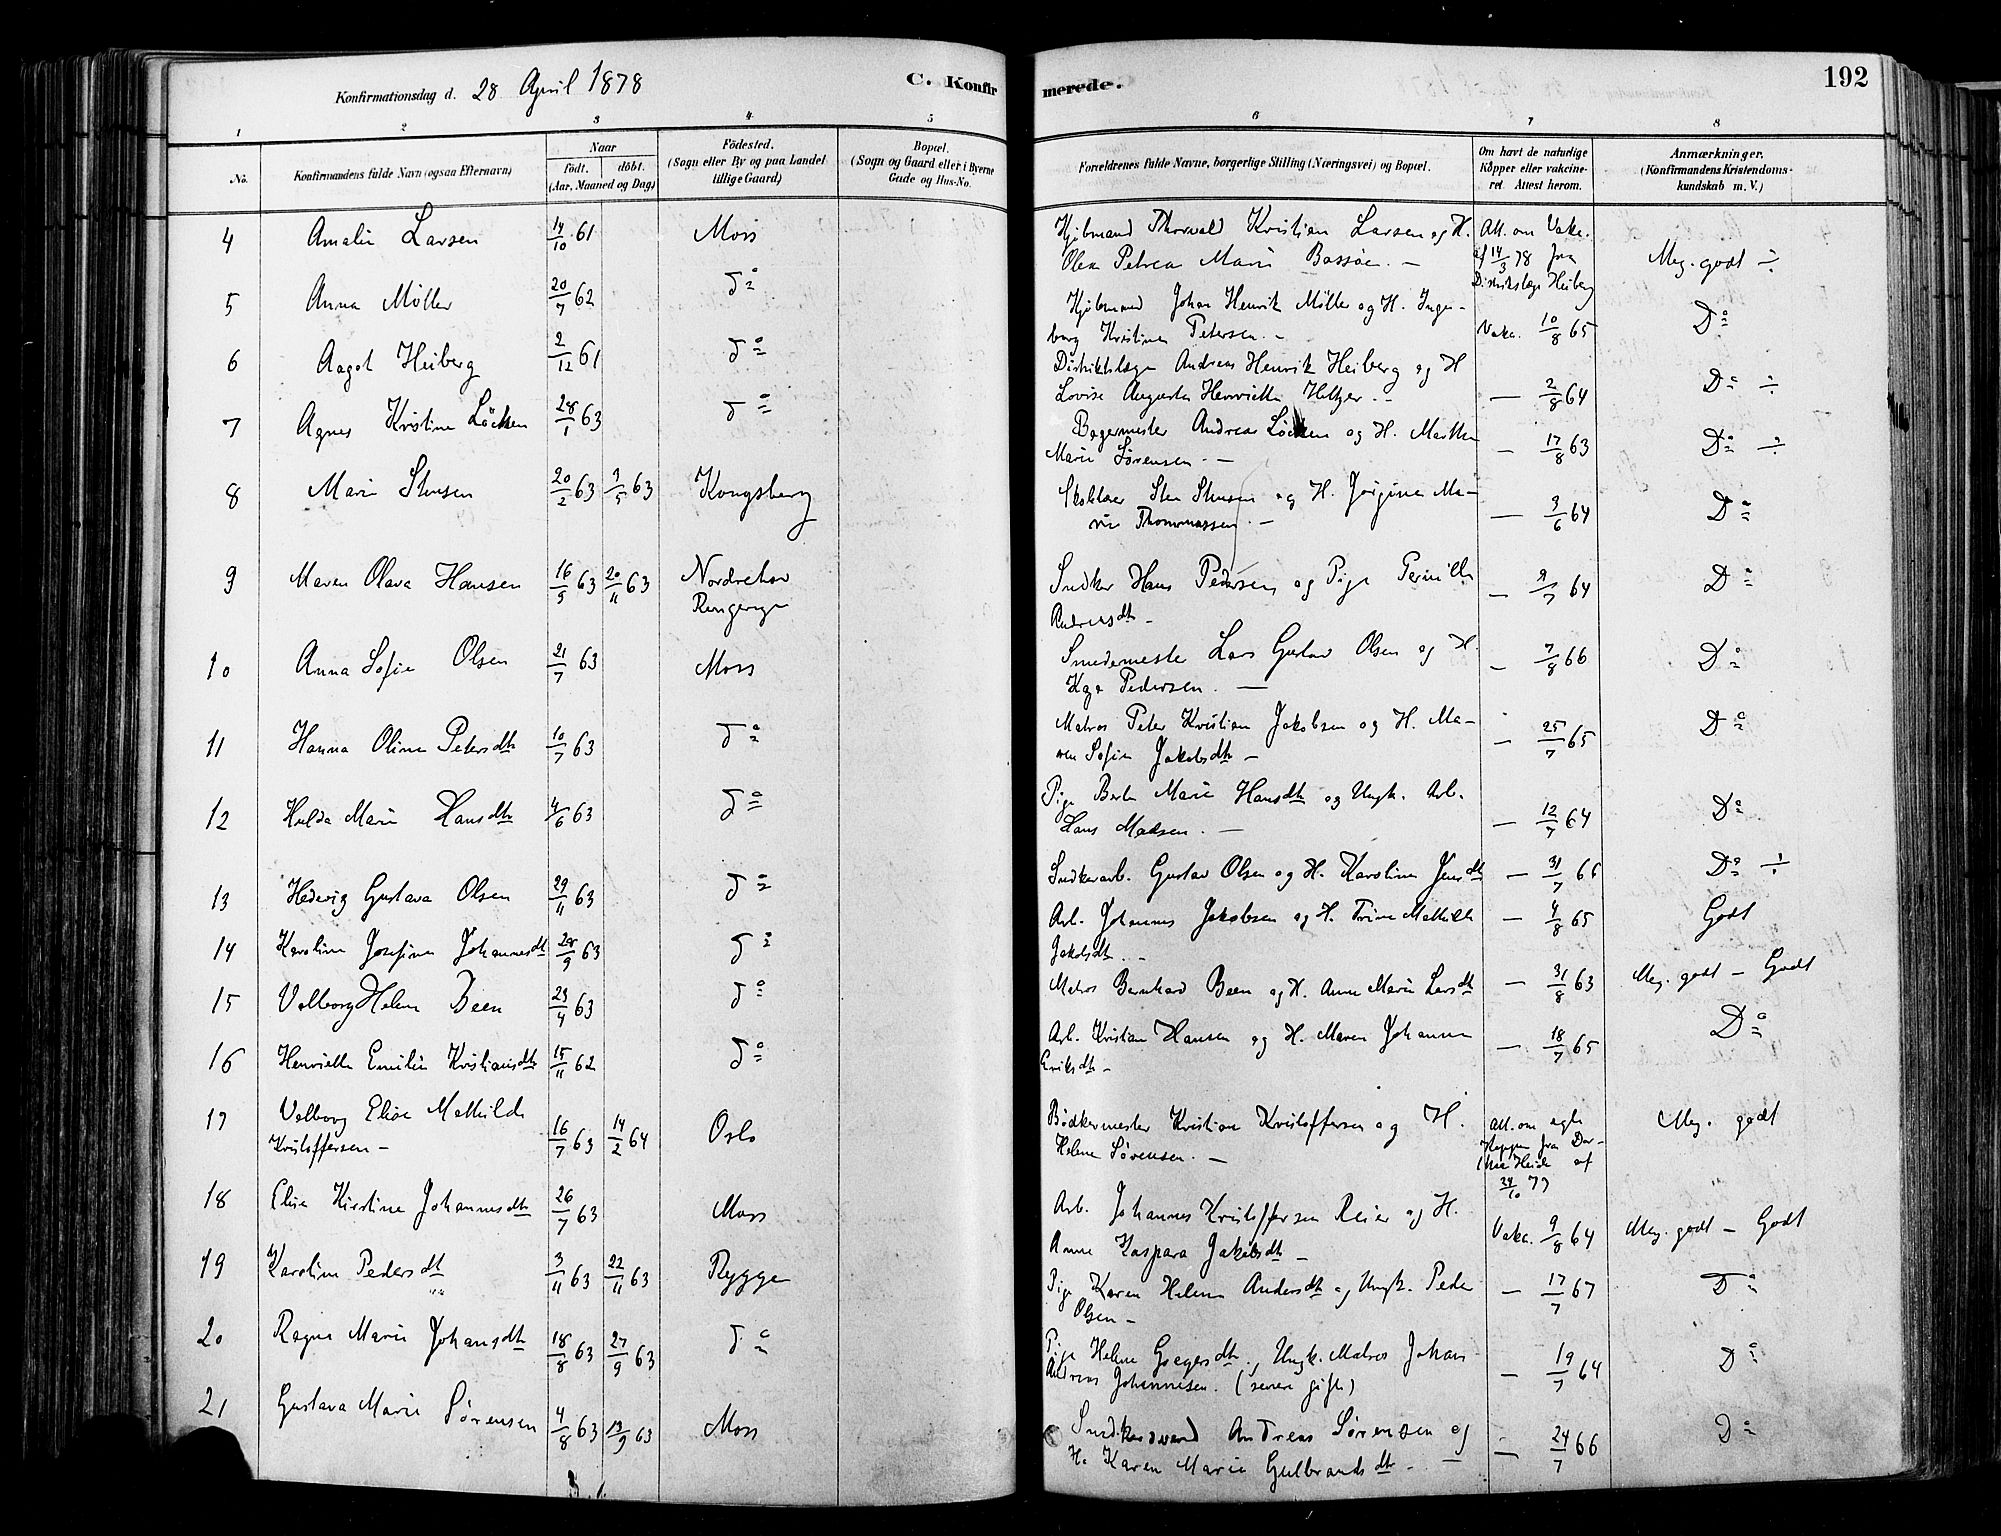 Konfirmationsdag d. 28 April 1878
C. Konfir
merede.
192
1 2 3 4 5 6 7 8
No.
Konfirmandens fulde Navn (ogsaa Efternavn)
Naar
födt. döbt.
(Aar, Maaned og Dag)
Födested.
(Sogn eller By og paa Landet
tillige Gaard)
Bopæl.
(Sogn og Gaard eller i Byerne
Gade og Hus-No.
Forældrenes fulde Navne, borgerlige Stilling (Næringsvei) og Bopæl.
Om havt de naturlige
Kopper eller vakcine-
ret Attest herom.
Anmærkninger.
(Konfirmandens Kristendoms-
kundskab m. V.)
4 Amalie Larsen 14/10 61 Moss
Kjöbmand Thorvald Kristian Larsen og H.
Olea Petrea Marie Bassøe. —
Att. om Vakc.
af 14/3 78 fra
Distriktslæge Heiberg
Meg. godt ÷
5 Anna Möller 20/7 62 do
Kjöbmand Johan Henrik Möller og H. Inge-
borg Kristine Petersen. —
Vakc. 10/8 65 Do
6 Aagot Heiberg 2/12 61 do
Distriktslæge Andreas Henrik Heiberg og H
Lovise Augusta Henriette
— 2/8 64 Do ÷
7 Agnes Kristine Löcken 28/1 63 do
Bagermester Andreas Löcken og H. Marthe
Marie Sörensen. —
— 17/8 63 Do ÷
8 Marie Stensen 20/2 63 3/5 63 Kongsberg
Sten Stensen og H. Jörgine Ma-
rie Thommassen. —
— 3/6 64 Do
9 Maren Olava Hansen 16/9 63 20/11 63 Nordrehov
Ringerige
Snedker Hans Pedersen og Pige Pernille
Andersdtr —
— 9/7 64 Do
10 Anna Sofie Olsen 21/7 63 Moss
Smedemester Lars Gustav Olsen og H.
Pedersen. —
— 7/8 66 Do
11 Hanna Oline Petersdtr 10/7 63 do
Matros Peter Kristian Jakobsen og H. Ma-
ren Sofie Jakobsdtr —
— 25/7 65 Do
12 Hulda Marie Hansdtr 4/6 63 do
Pige Berte Marie Hansdtr og Ungk. Arb.
Hans Madsen. —
— 12/7 64 Do
13 Hedevig Gustava Olsen 29/11 63 do
Snedkerarb. Gustav Olsen og H. Karoline Jensdtr
— 31/7 66 Do ÷
14 Karoline Josefine Johannesdtr 28/9 63 do
Arb. Johannes Jakobsen og H. Trine Mathilde
Jakobsdtr. —
— 4/8 65 Godt
15 Valborg Helene Been 23/4 63 do
Matros Bernhard Been og H. Anne Marie Larsdtr
— 31/8 63 Meg. godt — Godt
16 Henriette Emilie Kristiansdtr 15/11 62 do
Arb. Kristian Hansen og H. Maren Johanne
Eriksdtr —
— 18/7 65 Do
17 Valborg Elise Mathilde
Kristoffersen — 16/7 63 14/2 64 Oslo
Bödkermester Kristian Kristoffersen og H.
Helene Sörensen. —
Att. om egte
Kopper fra Doc-
Heide af
24/10 77
Meg. godt
18 Elise Kirstine Johannesdtr 26/7 63 Moss
Arb. Johannes Kristoffersen Reier og H.
Anne Kaspara Jakobsdtr —
Vakc. 9/8 64 Meg. godt — Godt
19 Karoline Pedersdtr 3/11 63 22/11 63 Rygge
Pige Karen Helene Andersdtr og Ungk. Peder
Olsen —
— 17/7 67 Do
20 Ragna Marie Johansdtr 18/8 63 27/9 63 do
Pige Helene Gregersdtr, Ungk. Matros Johan
Andreas Johannesen. (senere gift)
— 19/7 64 Do
21 Gustava Marie Sörensen 4/8 63 13/9 63 Moss
Snedkersvend Andreas Sörensen og
H. Karen Marie Gulbrandsdtr —
— 24/7 66 Do